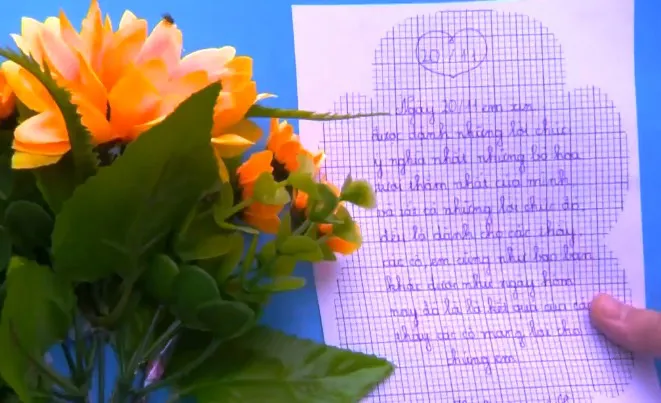 20/11
Ngày 20/11 em xin
được dành những lời chúc
ý nghĩa nhất những bó hoa
tươi thắm nhất của mình
và tất cả những lời chúc đó
đều là dành cho các thầy
các cô, em cũng như bao bạn
khác được như ngày hôm
nay đó là kết quả của các
thầy các cô mang lại cho
chúng em